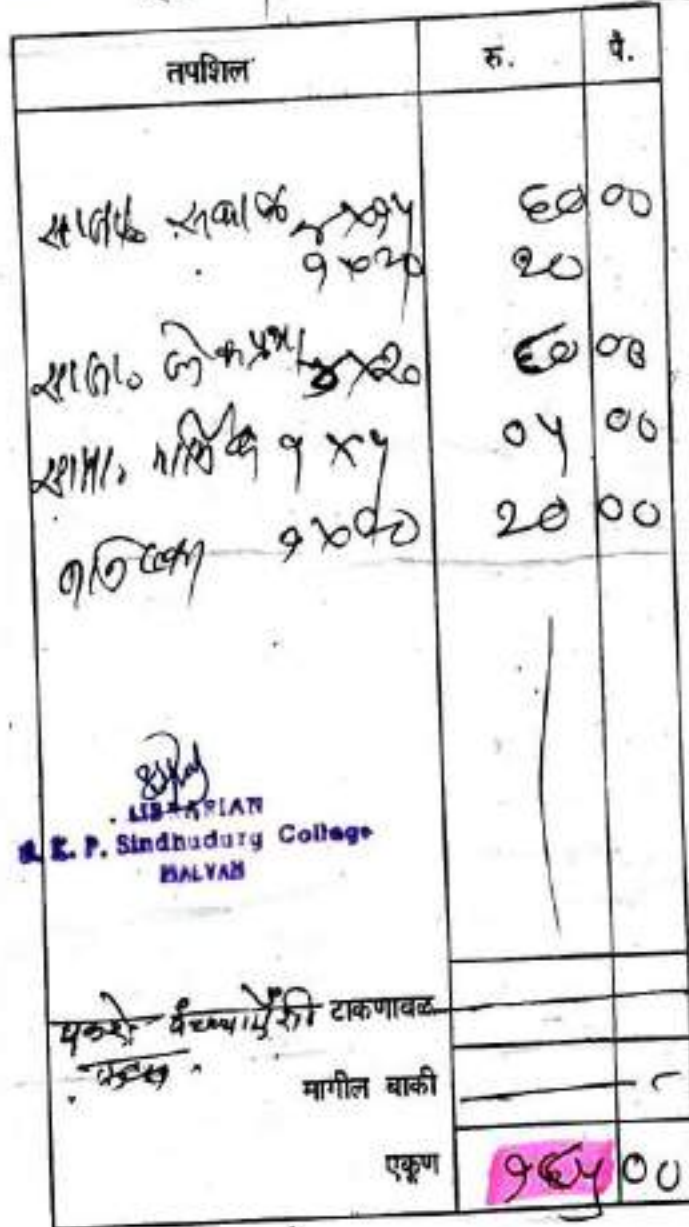 तपशिल रु. पै.
साप्ता. सकाळ ४×१५ ६० ००
१×२० २०
साप्ता. लोकप्रभा ३×२० ६० ००
साप्ता. मार्मिक १ × ५ ०५ ००
२० ००
LIBRARIAN
S. K. P. Sindhudurg College
MALVAN
टाकणावळ
मागील बाकी
एकूण १६५ ००